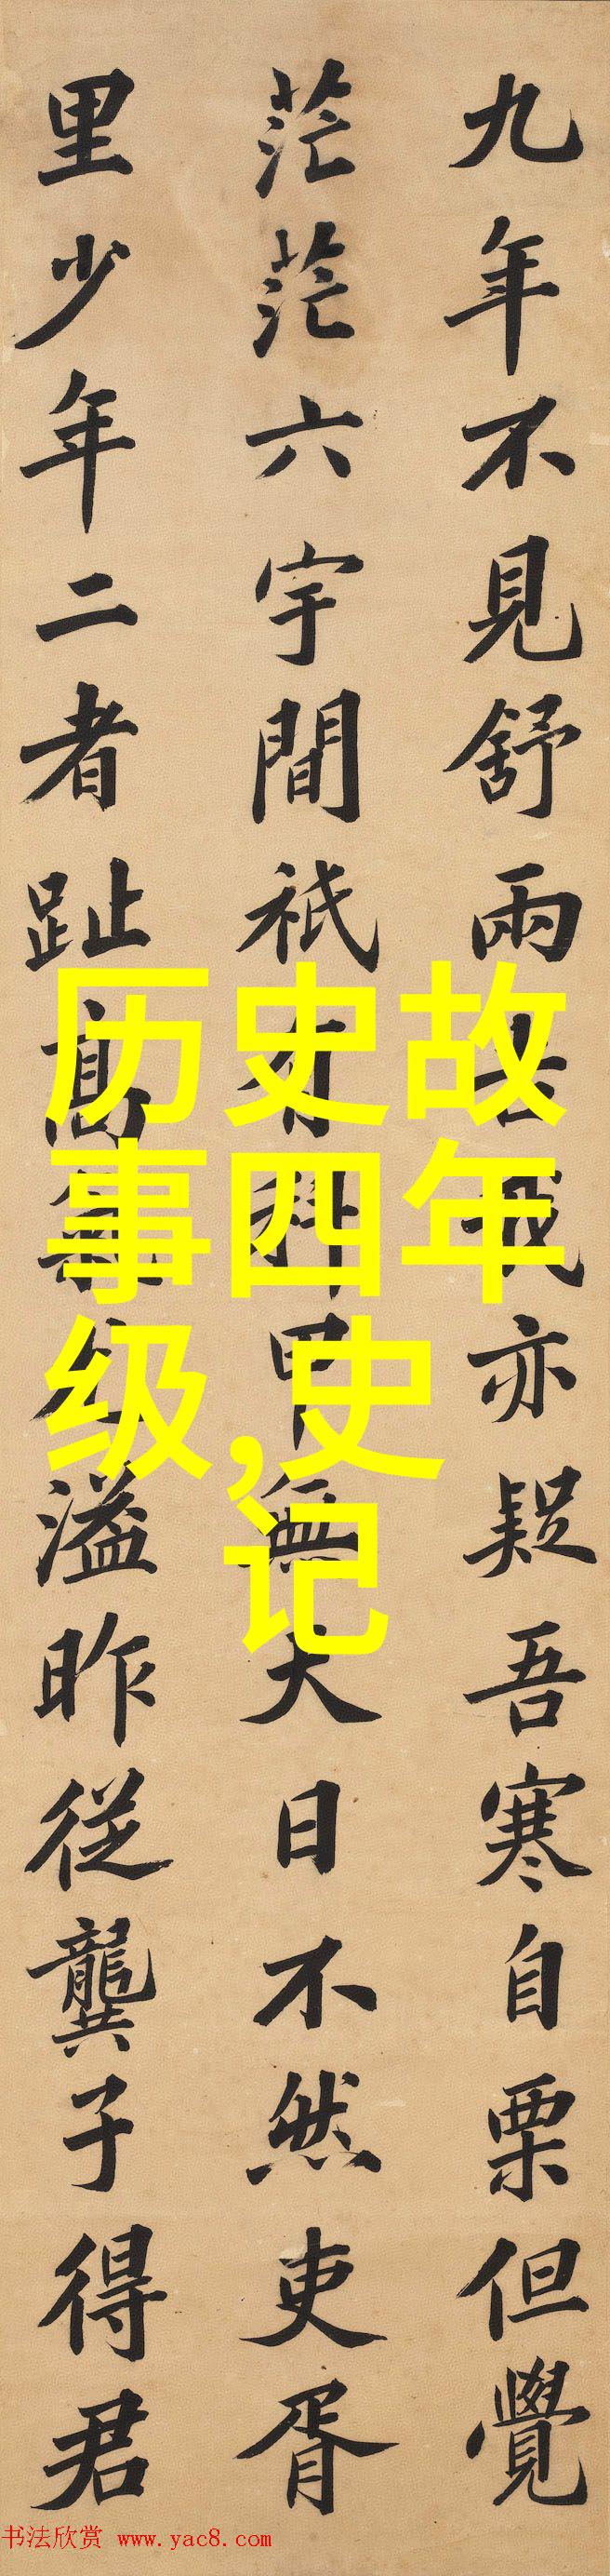 九年不見舒兩亦疑吾寒自栗但覺
茫茫六宇間祇有科甲無大日不然吏胥
里少年二者趾高氣溢昨從龔子得君
历史故
事四年
级,史
记
书法欣赏 www.yac8.com